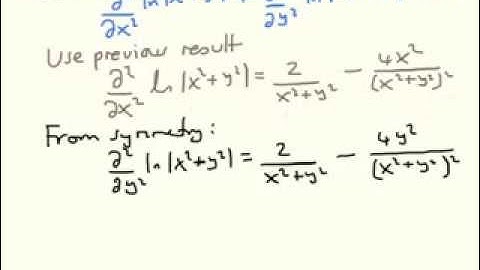 ∂²/∂x² ln |x² + y²| ∂²/∂y²
Use preview result
∂²/∂x² ln |x²+y²| = 2/(x²+y²) − 4x²/(x²+y²)²
From symmetry:
∂²/∂y² ln |x²+y²| = 2/(x²+y²) − 4y²/(x²+y²)²